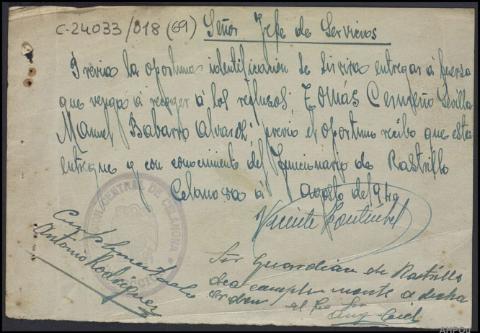 C-24033/018 (69)
Señor Jefe de Servicios
Previa la oportuna identificación se servira entregar á fuerza
que venga á recoger á los reclusos: Tomás Cermeño Sevilla
Manuel Babarro Alvarez; previo el oportuno recibo que esta
entregue y con conocimiento del funcionario de Rastrillo
Celanova á Agosto de 1949
Vicente
CENTRAL DE CELANOVA
Cumplimentado
Antonio Rodriguez
Sr Guardian de Rastrillo
dea cumplimiento a dicha
orden
el
AHPOU